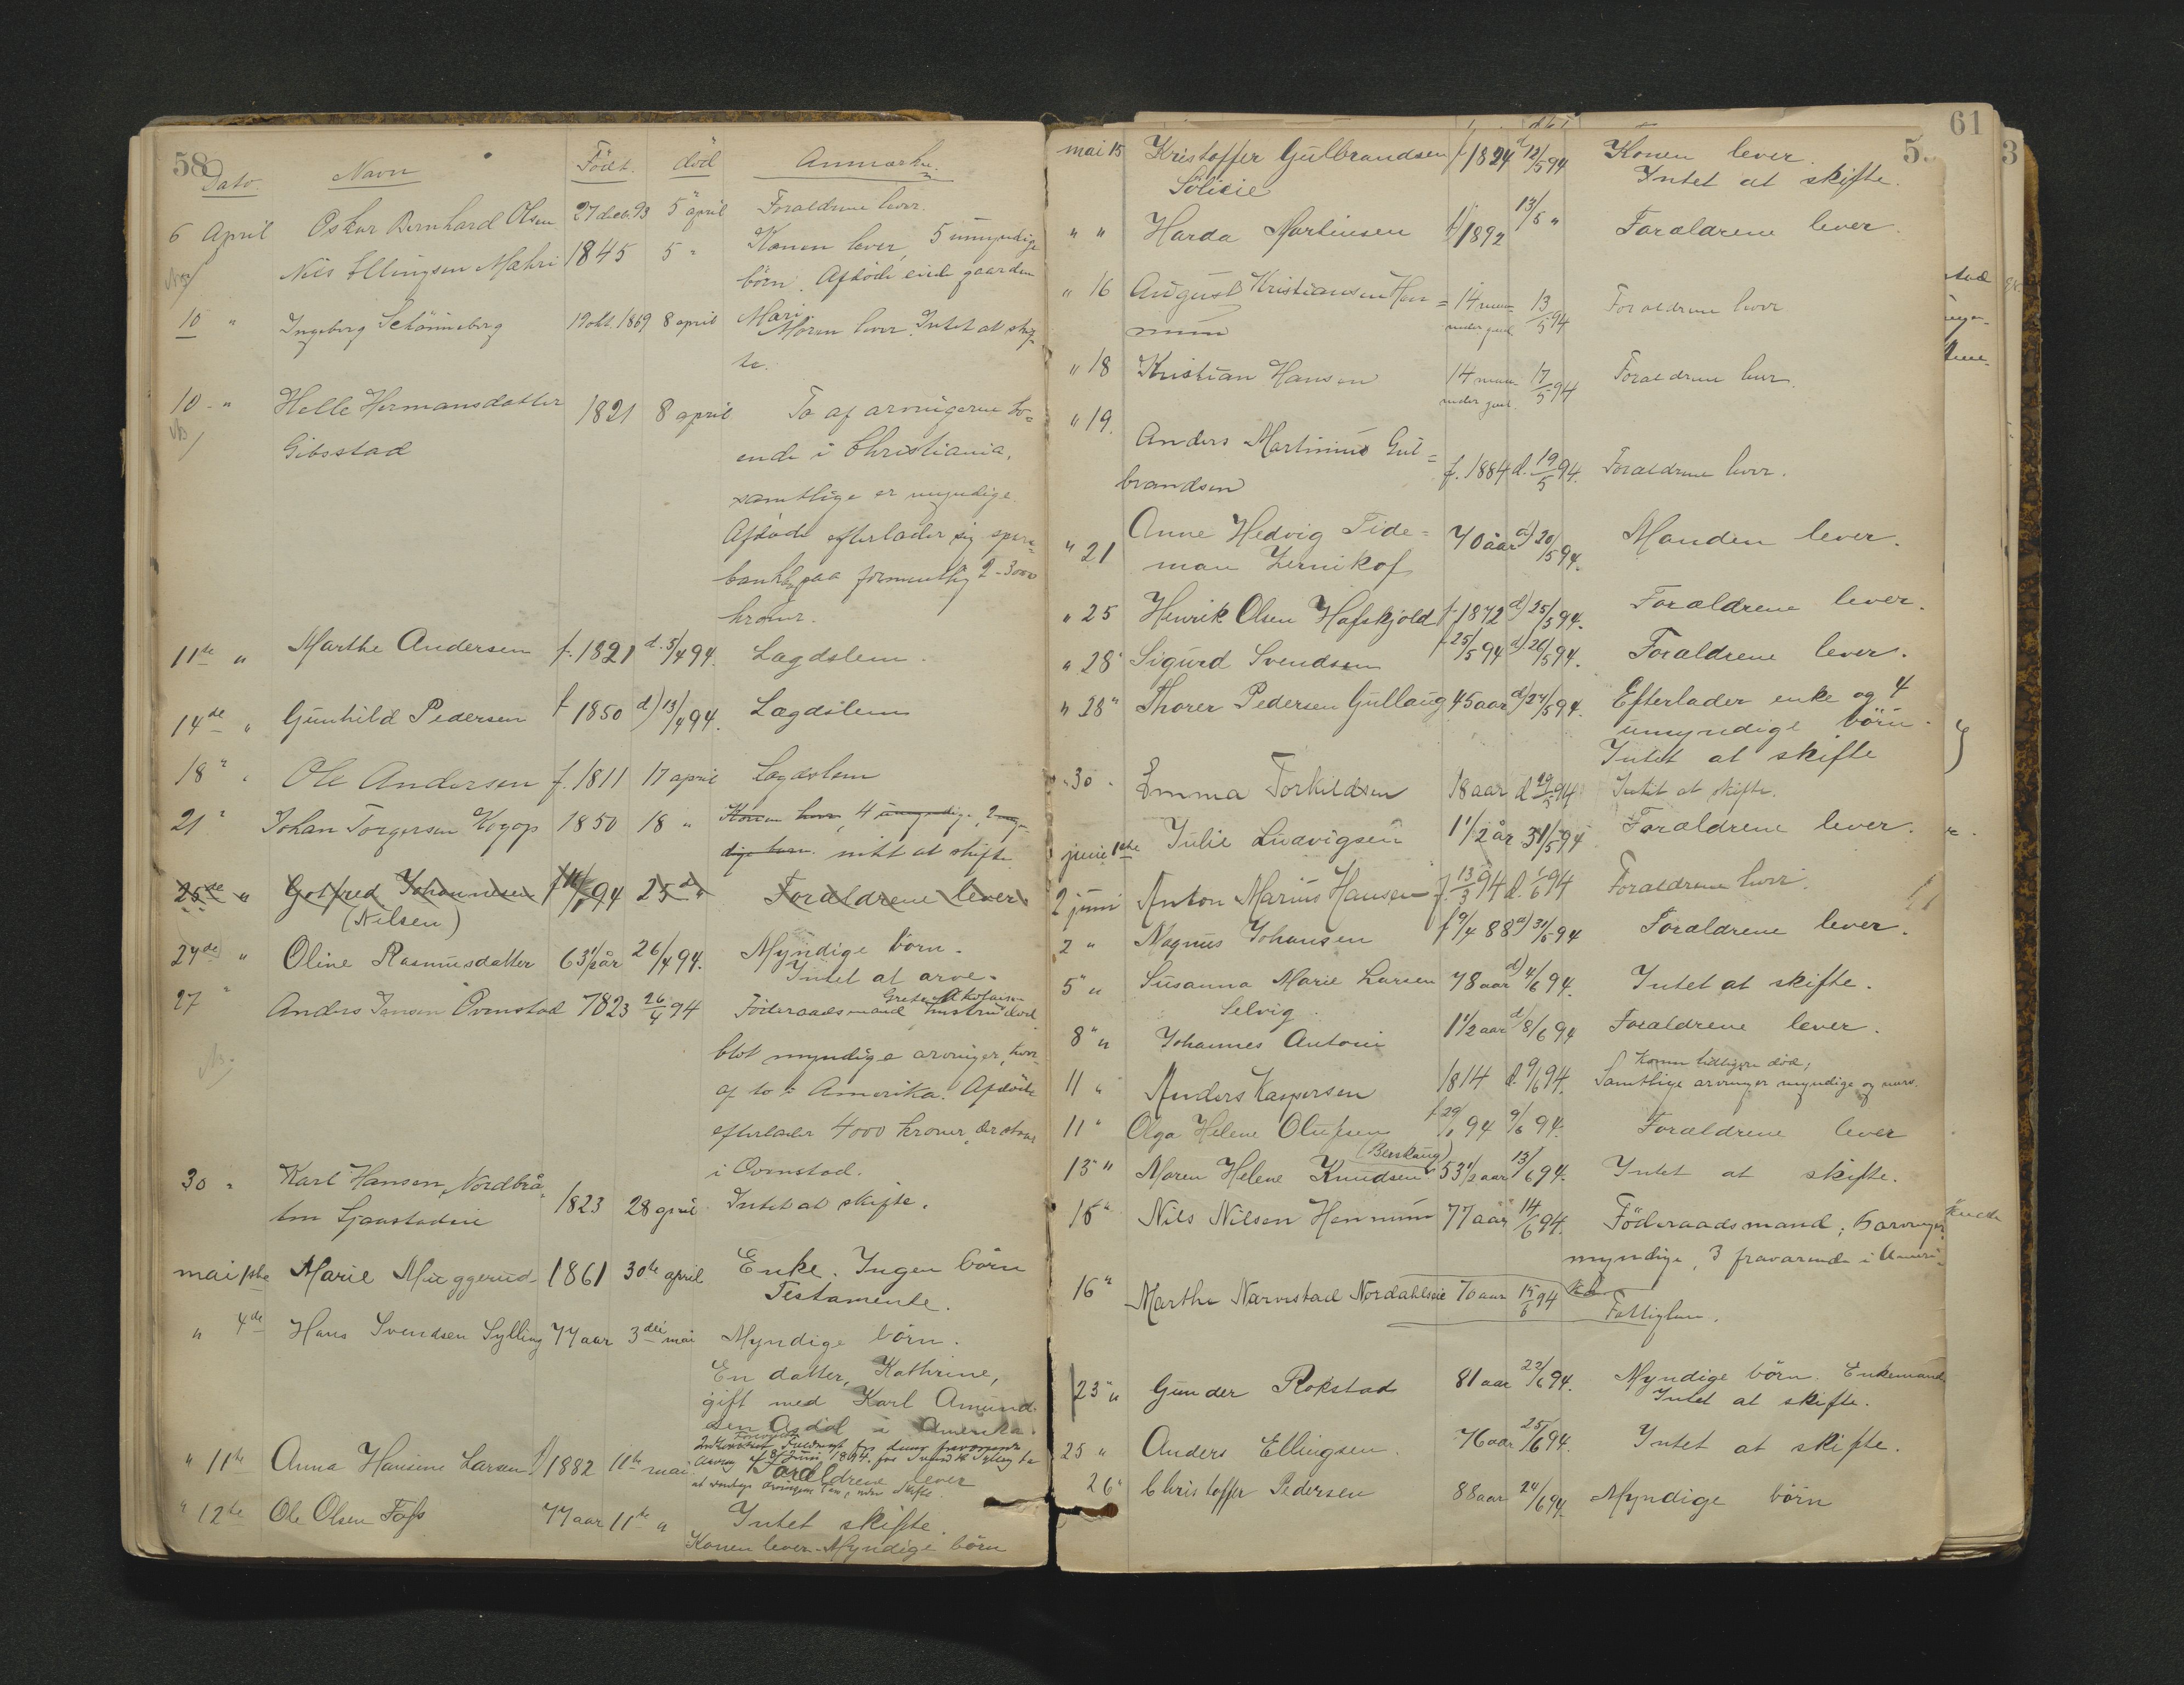 58
Dato. Navn Födt. död Anmærkn.
6 April Oskar Bernhard Olsen 27 decb. 93 5 april Forældrene lever.
NB Nils Ellingsen Mæhri 1845 5 " Konen lever, 5 umyndige
börn. Afdöde eiede gaarden
Mæri.
10 " Ingeborg Schönneberg 19 okt. 1869 8 april Moren lever. Intet at skif-
te.
10 - " Helle Hermansdatter 1821 8 april To af arvingerne bo=
NB Gibsstad ende i Christiania,
samtlige er myndige.
Afdöde efterlader sig spare-
bankbog paa formentlig 2-3000
kroner.
11te " Marthe Andersen f. 1821 d. 5/4 94. Lægdslem.
14de " Gunhild Pedersen f 1850 d) 13/4 94. Lægdslem
18 " " Ole Andersen f. 1811 17 april Lægdslem
21 " Johan Torgersen 1850 18 " Konen lever, 4 umyndige, 2 myn-
dige barn. intet at skifte
25de " Gotfred Johannesen f 94 25de " Forældrene lever
(Nilsen)
27de " Oline Rasmusdatter 63 1/2 år 26/4 94. Myndige börn.
Intet at arve.
27 " Anders Jensen Ovnstad 1823 26/4 94 Föderaadsmand hustru död
NB. blot myndige arvinger, hvor-
af to i Amerika. Afdöde
efterlader 4000 kroner, der staar
i Ovnstad.
30 " Karl Hansen, Nordbrå- 1823 28 april Intet at skifte.
ten
mai 1ste Marie Muggerud 1861 30te april Enke. Ingen börn
Testamente.
" 4de Hans Svendsen Sylling 77 aar 3die mai Myndige börn.
En datter, Kathrine,
gift med Karl Amund-
sen i Amerika.
" 11te Anna Hansine Larsen f) 1882 11te mai Forældrene lever
" 12te Ole Olsen Foss 77 aar 11te " Intet skifte.
Konen lever. Myndige börn
61
3
5
mai 15 Kristoffer Gulbrandsen f 1824 d 12/5 94 Konen lever.
Intet at skifte.
" " Harda Martinsen f) 1892 13/5 " Forældrene lever.
" 16 August Kristiansen Hen= 14 mdr 13/5 94 Forældrene lever
num under gud.
" 18 Kristian Hansen 14 17/5 94 Forældrene lever.
" 19. Anders Martinius Gul=
brandsen f. 1884 d. 19/5 94. Forældrene lever.
" 21 Anne Hedvig Tide= 70 aar d) 20/5 94. Manden lever.
man Zernikof
" 25 Henrik Olsen Hafskjold f 1872 d) 25/5 94. Forældrene lever.
" 28 " Sigurd Svendsen f 25/5 94 d) 26/5 94. Forældrene lever.
" 28 " Thorer Pedersen Gullaug 45 aar d) 27/5 94. Efterlader enke og 4
umyndige börn.
Intet at skifte
" 30 " Emma Torkildsen 18 aar d 29/5 94 Intet at skifte.
juni 1ste Julie Ludvigsen 1 1/2 år 31/5 94 Forældrene lever.
2 juni Anton Marius Hansen f. 13/3 94 d. 1/6 94 Forældrene lever.
2 " Magnus Johansen f 9/4 88 d) 31/5 94 Forældrene lever.
5 " " Susanna Marie Larsen 78 aar d) 4/6 94. Intet at skifte.
Selvig.
8 " " Johannes Antoni 1 1/2 aar d/ 8/6 94 Forældrene lever.
11 " Anders Kaspersen 1814 d. 9/6 94. Konen tidligere död;
Samtlige arvinger myndige og nærv.
11 " Olga Helene Olufsen f 29/1 94 9/6 94. Forældrene lever
13 " " Maren Helene Knudsen (Berskaug) 53 1/2 aar 13/6 94. Intet at skifte.
15 " Nils Nilsen Hennum 77 aar 14/6 94. Föderaadsmand; 5 arvinger
myndige, 3 fraværende i Ameri-
ka
16 " Marthe Narvestad Nordahlseie 70 aar 15/6 94 Fattiglem.
23 " " Gunder Rokstad 81 aar 22/6 94. Myndige börn. Enkemand
Intet at skifte.
25 " Anders Ellingsen. 76 aar 25/6 94. Intet at skifte.
26 " Christoffer Pedersen 88 aar 24/6 94. Myndige börn